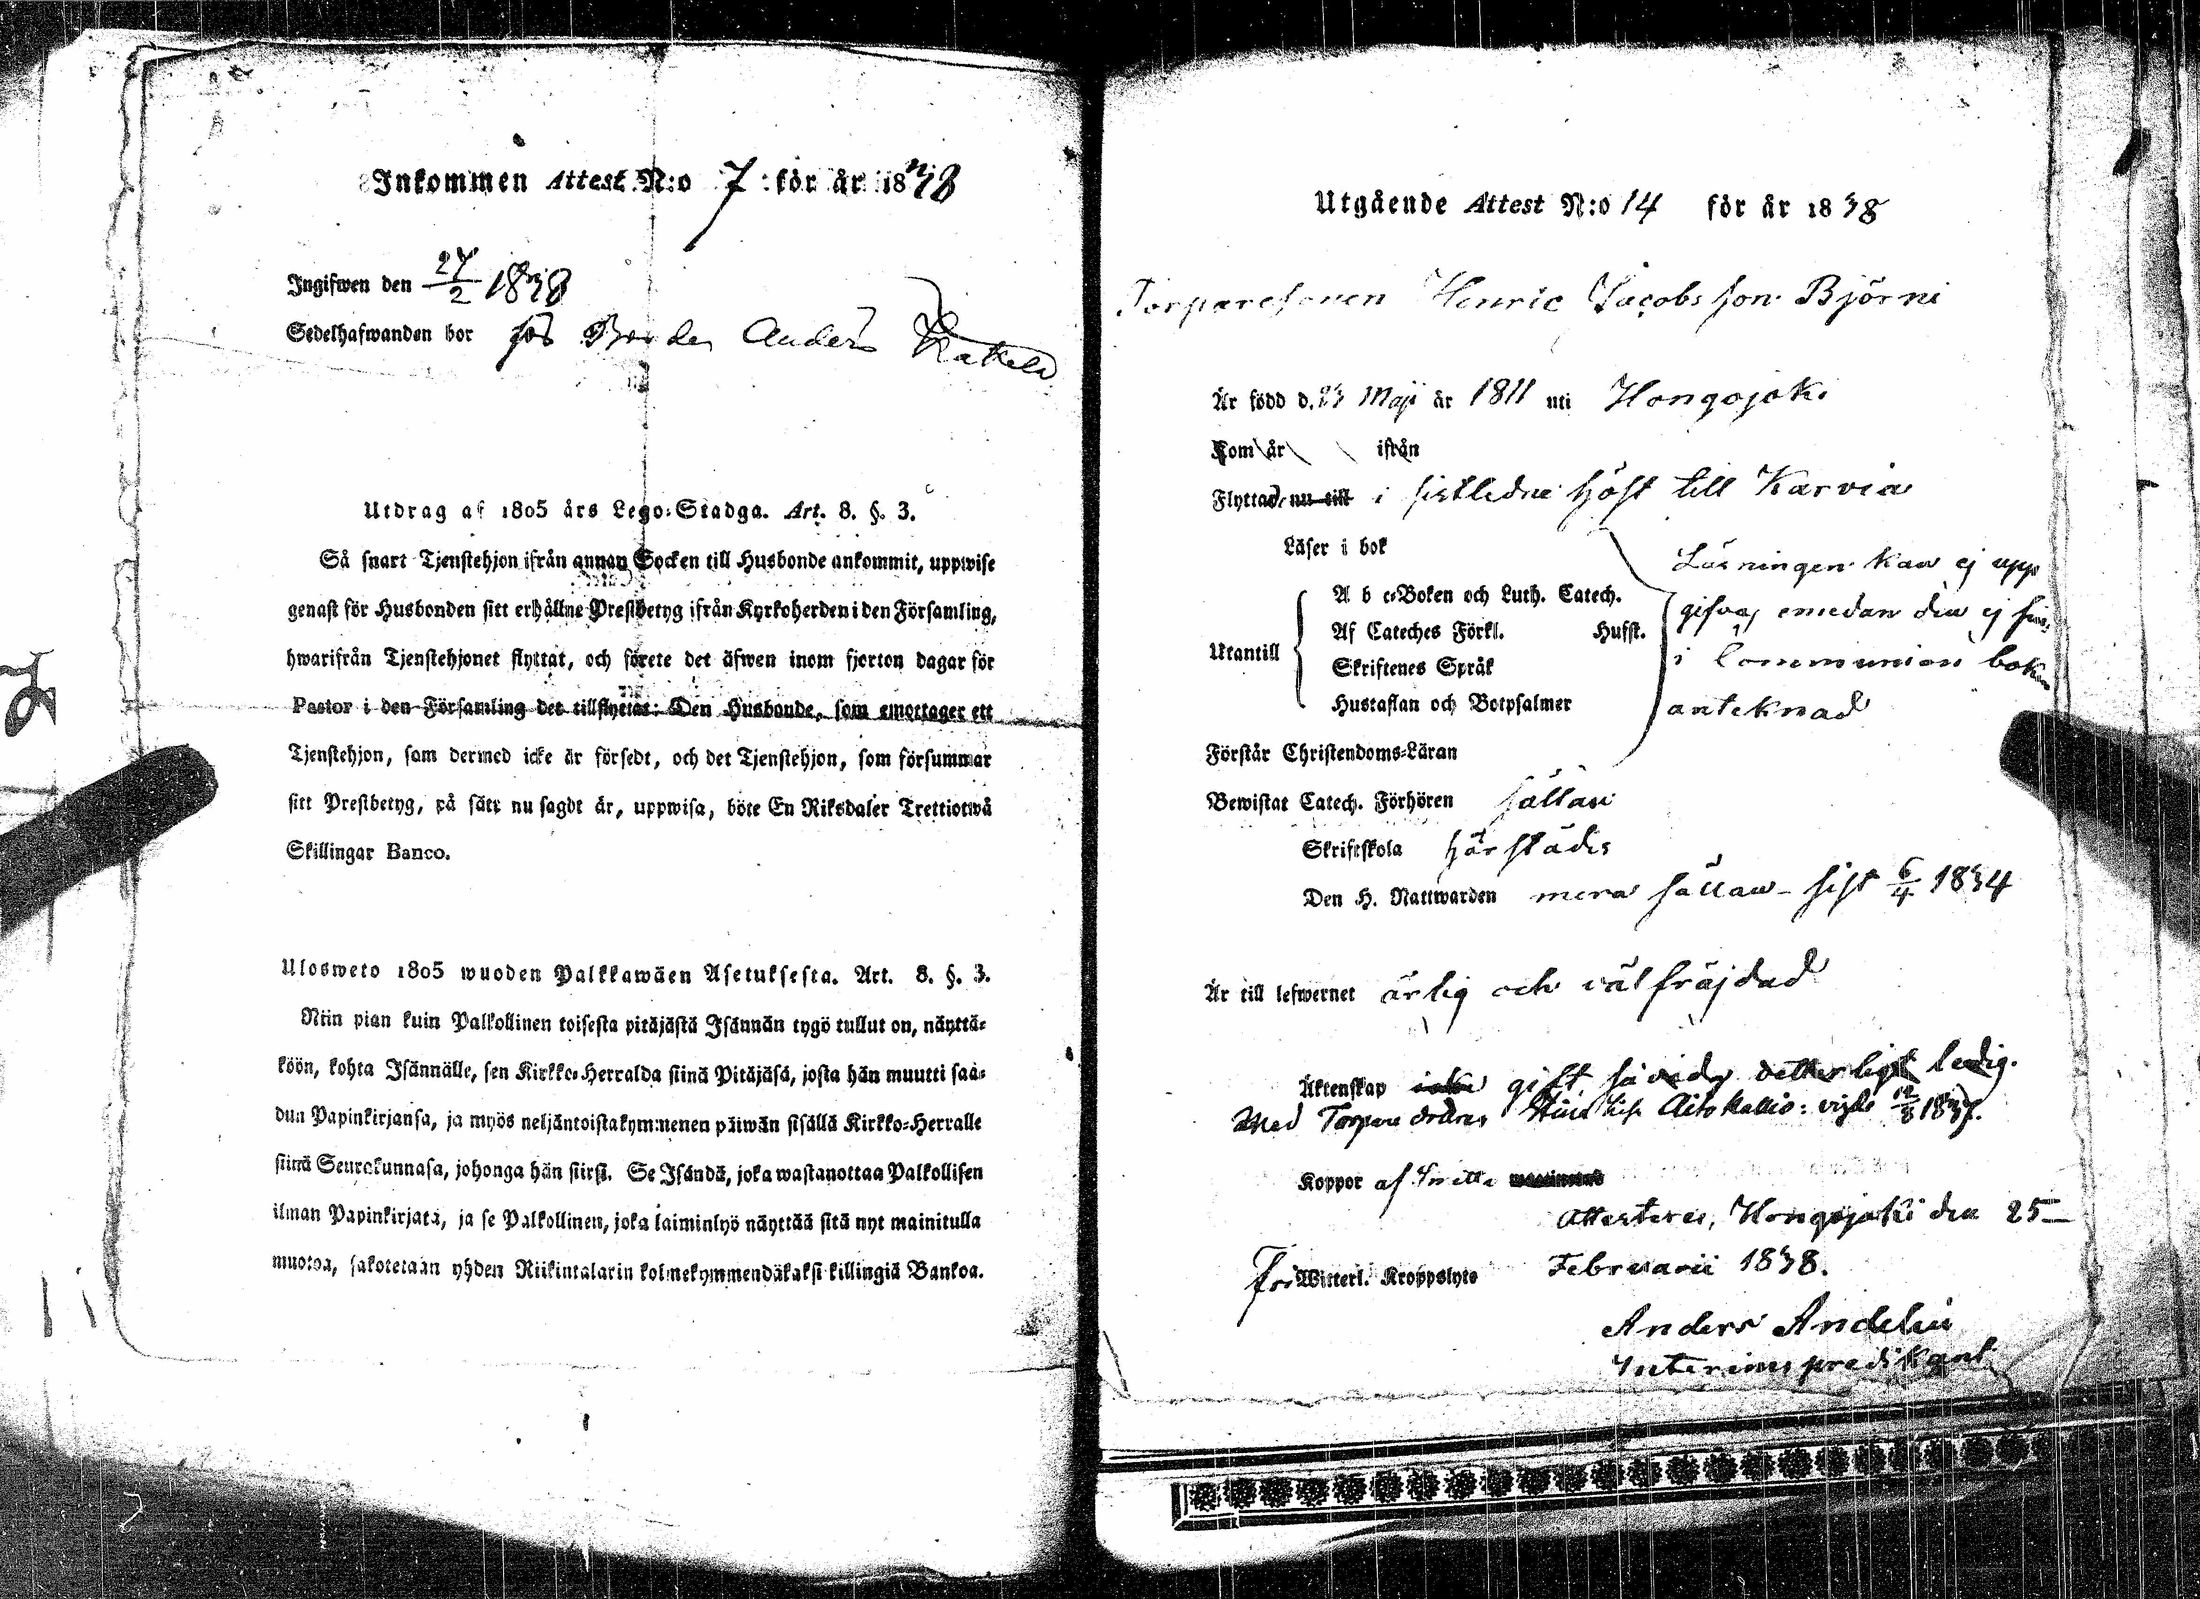 Inkommen Attest N:o 7 för år 1838
Ingifwen den 27/2 1838
Sedelhafwanden bor hos Bonden Anders
Utdrag af 1805 års Lego-Stadga. Art. 8. §. 3.
Så snart Tjenstehjon ifrån annan Socken till Husbonde ankommit, uppwise
genast för Husbonden sitt erhållne Prestbetyg ifrån Kyrkoherden i den Församling,
hwarifrån Tjenstehjonet flyttat, och förete det äfwen inom fjorton dagar för
Pastor i den Församling det tillflyttat: Den Husbonde, som emottager ett
Tjenstehjon, som dermed icke är försedt, och det Tjenstehjon, som försummar
sitt Prestbetyg, på sätt nu sagdt är, uppwisa, böte En Riksdaler Trettiotwå
Skillingar Banco.
Ulosweto 1805 wuoden Palkkawäen Asetuksesta. Art. 8. §. 3.
Niin pian kuin Palkollinen toisesta pitäjästä Isännän tygö tullut on, näyttä-
köön, kohta Isännälle, sen Kirkko-Herralda siinä Pitäjäsä, josta hän muutti saa-
dun Papinkirjansa, ja myös neljäntoistakymmenen päiwän sisällä Kirkko-Herralle
siinä Seurakunnasa, johonga hän siirsi. Se Isändä, joka wastanottaa Palkollisen
ilman Papinkirjatä, ja se Palkollinen, joka laiminlyö näyttää sitä nyt mainitulla
muotoa, sakotetaan yhden Riikintalarin kolmekymmendäkaksi killingiä Bankoa.
Utgående Attest N:o 14 för år 1838
Torparesonen Henric Jacobsson Björni
Är född d. 23 Maji år 1811 uti Hongojoki
Kom år ifrån
Flyttade nu till i sistledne höst till Karvia
Läser i bok
Läsningen kan ej upp
A b c-Boken och Luth. Catech.
gifvas emedan den ej fins
Af Cateches Förkl. Husst.
Utantill
i Communion boken
Skriftenes Språk
Hustaflan och Botpsalmer
anteknad
Förstår Christendoms-Läran
Bewistat Catech. Förhören sällan
Skriftskola härstädes
Den H. Nattwarden mera sällan - sist 6/4 1834
Är till lefwernet ärlig och välfräjdad
Äktenskap icke gift så vida ledig.
Med Torpare Aitokallio: vigde 1837.
Koppor af
Attesteras, Hongojoki den 25
Februarii 1838.
Fri Witterl. Kroppslyte
Anders Andelin
Interims predikant